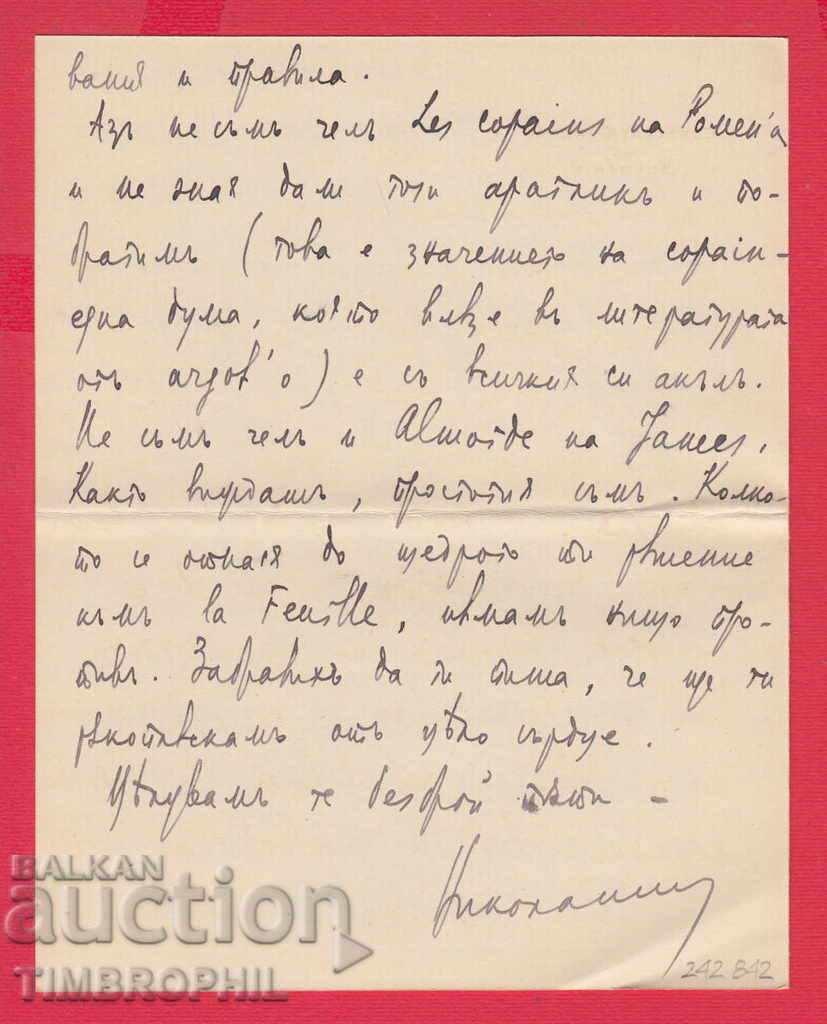 вания и правила.
Азъ не съмъ челъ Les copains на Ромен'а
и не зная дали този аратликъ и по-
братимъ (това е значението на copain-
една дума, която влѣзе въ литературата
отъ argot'о) е съ всичкия си акълъ.
Не съмъ челъ и Almoïde на James,
Както виждашъ, простотия съмъ. Колко-
то се отнася до щедрото ти рѣшение
къмъ la Feuille, нѣмамъ нищо про-
тивъ. Забравихъ да ти пиша, че ще ти
рѫкоплѣскамъ отъ цѣло сърдце.
Цѣлувамъ те безброй пѫти -
BALKAN
auction
TIMBROPHIL
242 842